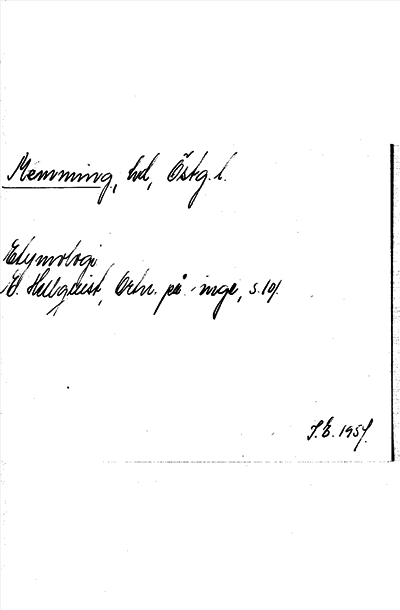 Memming, hd, Östg. l.
Etymologi
E. Hellquist, Ortn. på -inge, s. 101.
J.E. 1957.